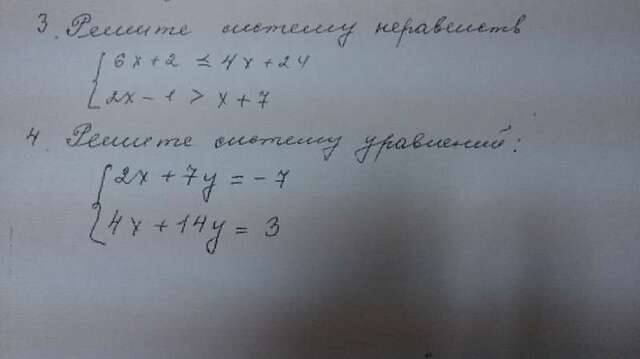 3. Решите систему неравенств
6x+2 ≤ 4x+24
2x-1 > x+7
4 Решите систему уравнений:
2x+7y=-7
4x+14y=3